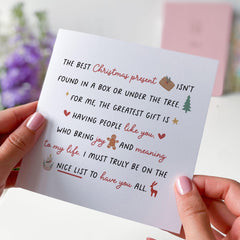 THE BEST Christmas present ISN'T
FOUND IN A BOX OR UNDER THE TREE.
FOR ME, THE GREATEST GIFT IS
HAVING PEOPLE like you,
WHO BRING joy AND meaning
to my life. I MUST TRULY BE ON THE
NICE LIST TO have you ALL.